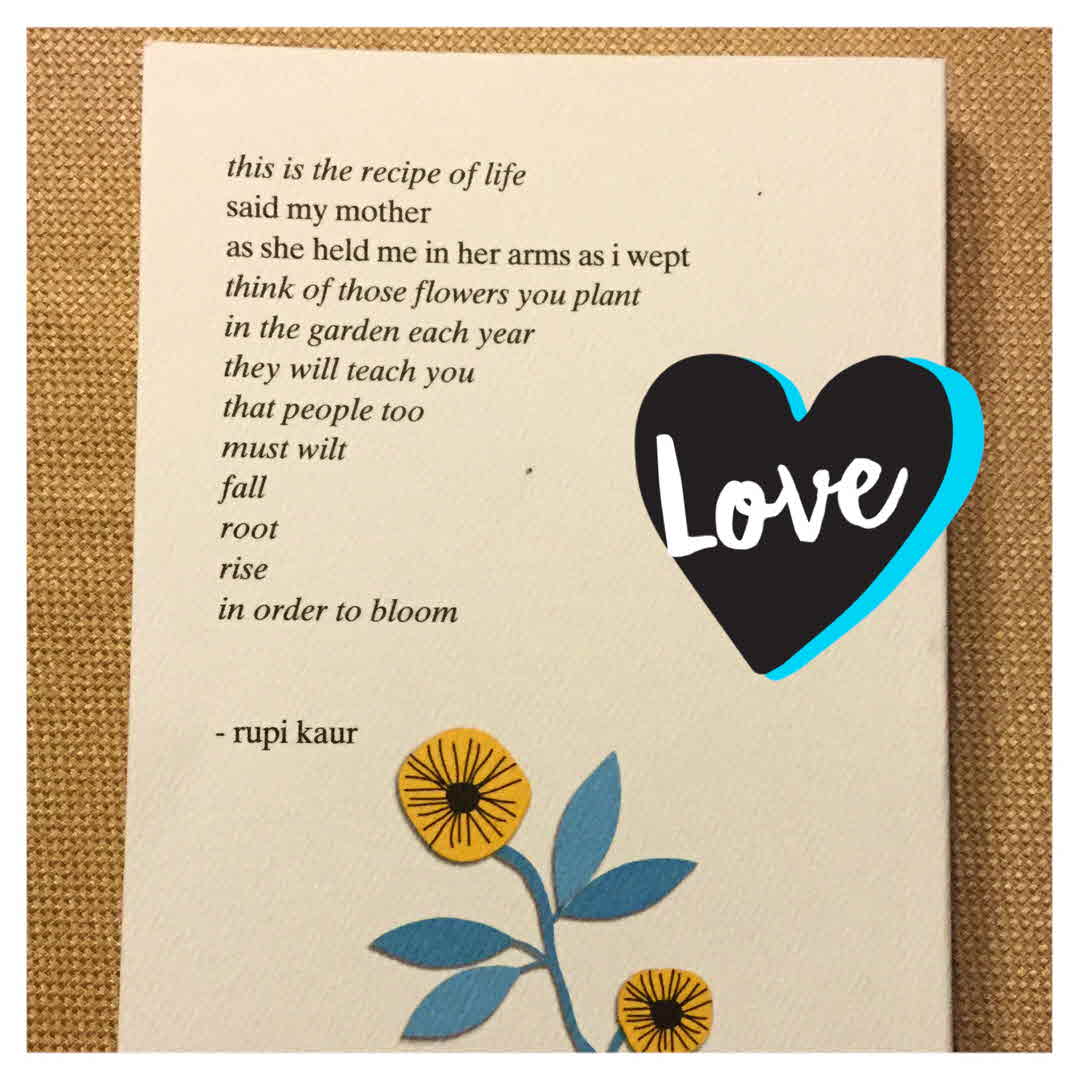 this is the recipe of life
said my mother
as she held me in her arms as i wept
think of those flowers you plant
in the garden each year
they will teach you
that people too
must wilt
fall
root
rise
in order to bloom
- rupi kaur
Love